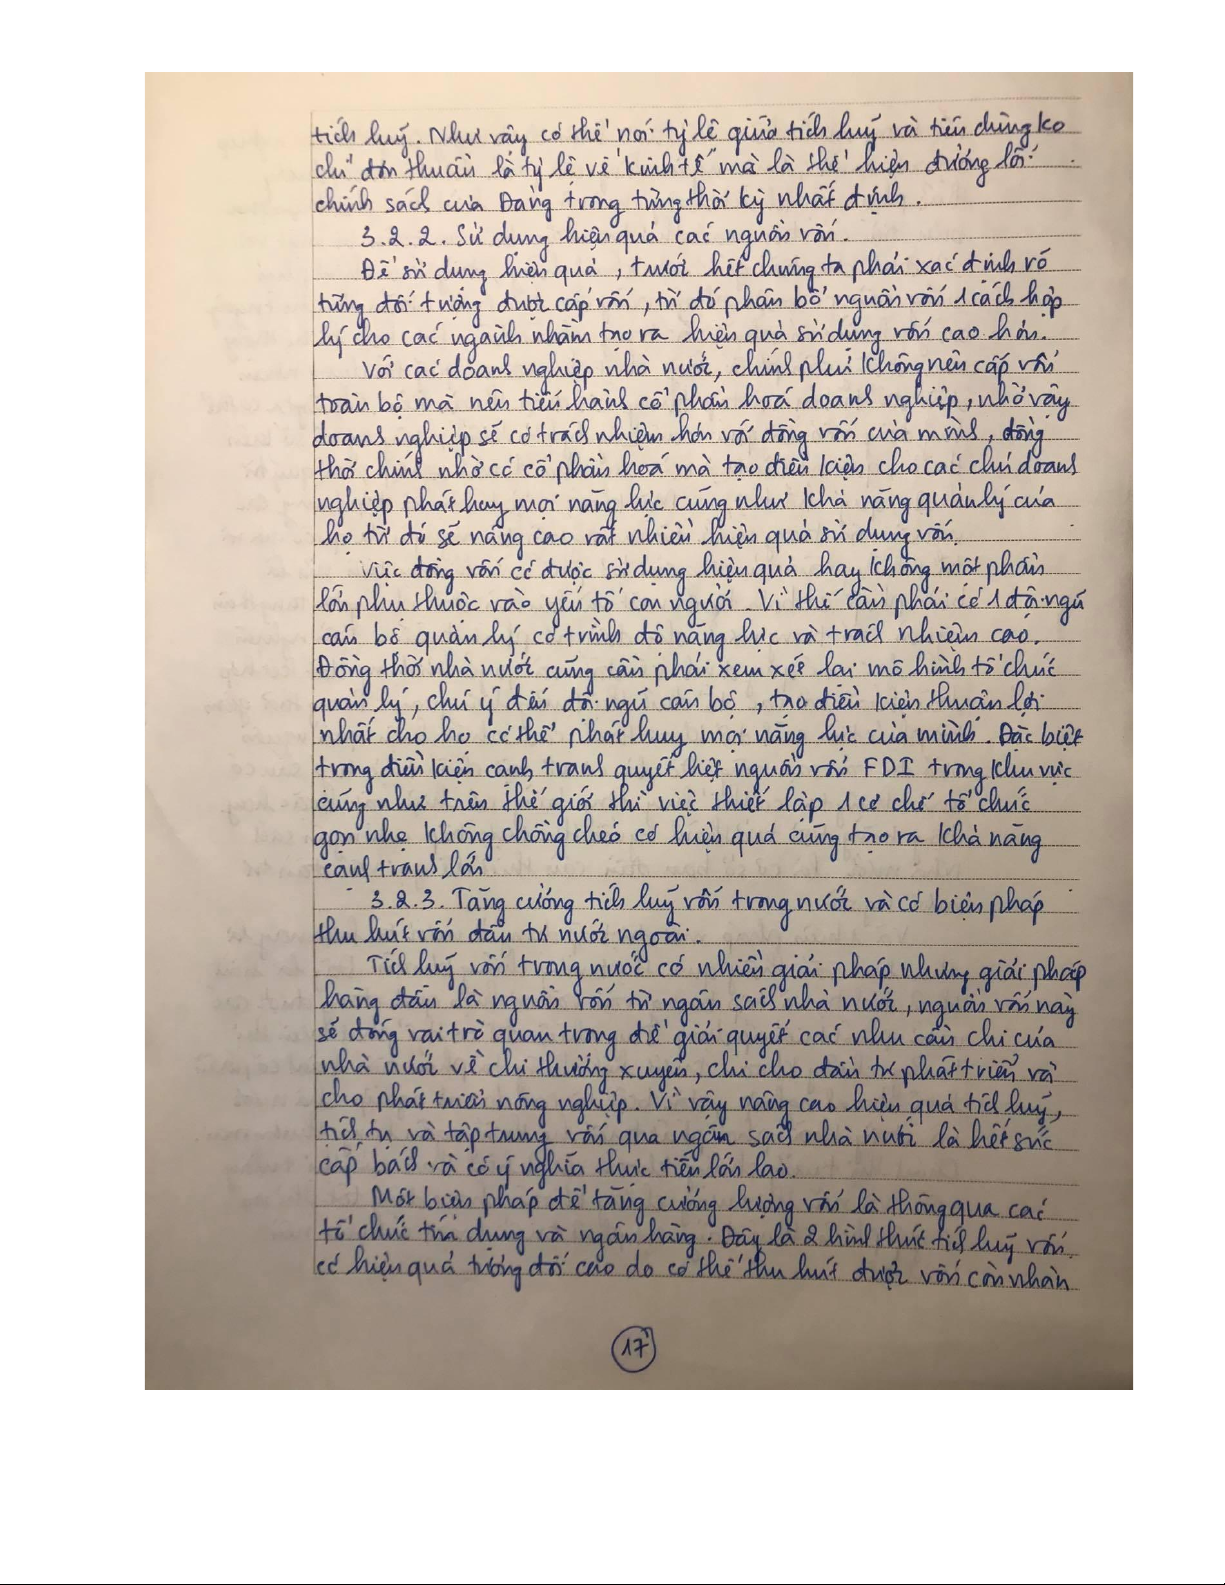 tích luỹ. Như vậy có thể nói tỷ lệ giữa tích luỹ và tiêu dùng ko
chỉ đơn thuần là tỷ lệ về kinh tế mà là thể hiện đường lối
chính sách của Đảng trong từng thời kỳ nhất định.
3.2.2. Sử dụng hiệu quả các nguồn vốn.
Để sử dụng hiệu quả, trước hết chúng ta phải xác định rõ
từng đối tượng được cấp vốn, từ đó phân bổ nguồn vốn 1 cách hợp
lý cho các ngành nhằm tạo ra hiệu quả sử dụng vốn cao hơn.
Với các doanh nghiệp nhà nước, chính phủ không nên cấp vốn
toàn bộ mà nên tiến hành cổ phần hoá doanh nghiệp, nhờ vậy
doanh nghiệp sẽ có trách nhiệm hơn với đồng vốn của mình, đồng
thời chính nhờ có cổ phần hoá mà tạo điều kiện cho các chủ doanh
nghiệp phát huy mọi năng lực cũng như khả năng quản lý của
họ từ đó sẽ nâng cao rất nhiều hiệu quả sử dụng vốn.
Việc đồng vốn có được sử dụng hiệu quả hay không một phần
lớn phụ thuộc vào yếu tố con người. Vì thế cần phải có 1 đội ngũ
cán bộ quản lý có trình độ năng lực và trách nhiệm cao.
Đồng thời nhà nước cũng cần phải xem xét lại mô hình tổ chức
quản lý, chú ý đến đội ngũ cán bộ, tạo điều kiện thuận lợi
nhất cho họ có thể phát huy mọi năng lực của mình. Đặc biệt
trong điều kiện cạnh tranh quyết liệt nguồn vốn FDI trong khu vực
cũng như trên thế giới thì việc thiết lập 1 cơ chế tổ chức
gọn nhẹ không chồng chéo có hiệu quả cũng tạo ra khả năng
cạnh tranh lớn
3.2.3. Tăng cường tích luỹ vốn trong nước và có biện pháp
thu hút vốn đầu tư nước ngoài.
Tích luỹ vốn trong nước có nhiều giải pháp nhưng giải pháp
hàng đầu là nguồn vốn từ ngân sách nhà nước, nguồn vốn này
sẽ đóng vai trò quan trọng để giải quyết các nhu cầu chi của
nhà nước về chi thường xuyên, chi cho đầu tư phát triển và
cho phát triển nông nghiệp. Vì vậy nâng cao hiệu quả tích luỹ,
tích tụ và tập trung vốn qua ngân sách nhà nước là hết sức
cấp bách và có ý nghĩa thực tiễn lớn lao.
Một biện pháp để tăng cường lượng vốn là thông qua các
tổ chức tín dụng và ngân hàng. Đây là 2 hình thức tích luỹ vốn
có hiệu quả tương đối cao do có thể thu hút được vốn còn nhàn
17